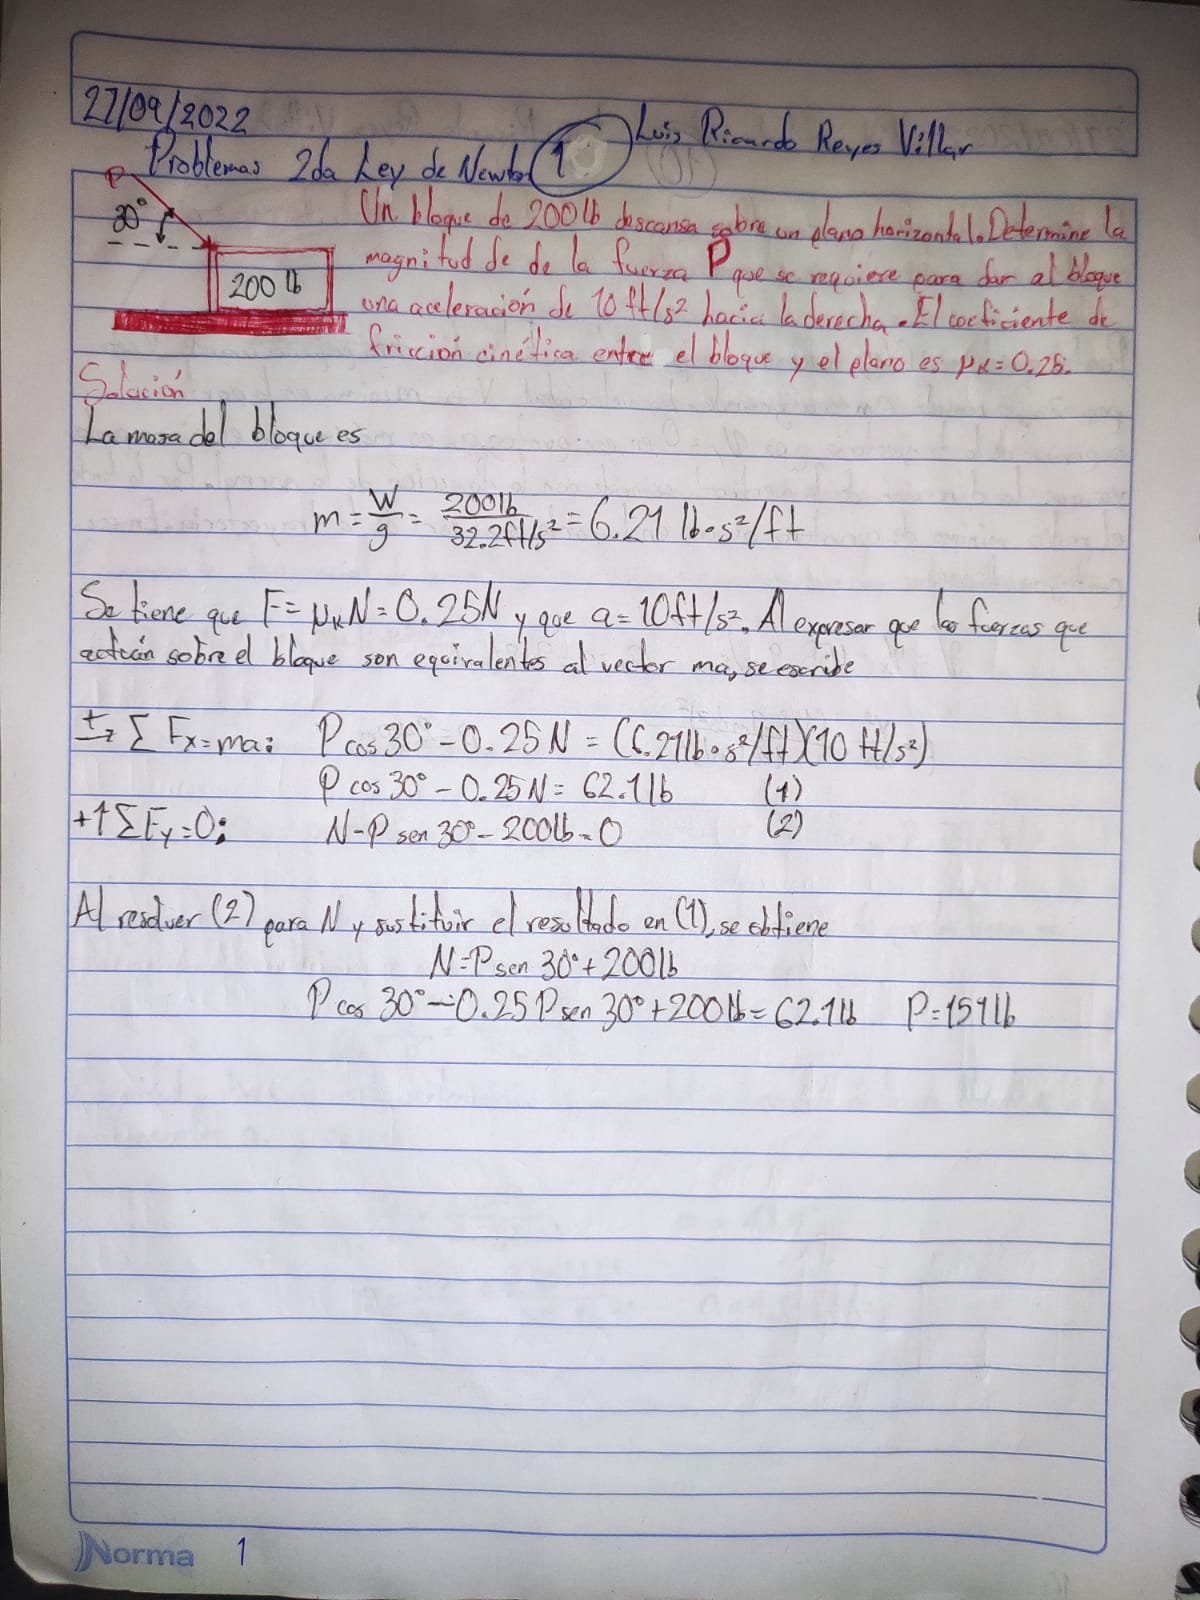 27/09/2022
Luis Ricardo Reyes Villar
Problemas 2da Ley de Newton 1
P
30°
200 lb
Un bloque de 200 lb descansa sobre un plano horizontal. Determine la
magnitud de de la fuerza P que se requiere para dar al bloque
una aceleración de 10 ft/s² hacia la derecha. El coeficiente de
fricción cinética entre el bloque y el plano es μk = 0.25.
Solución
La masa del bloque es
m = W/g = 200lb/32.2ft/s² = 6.21 lb·s²/ft
Se tiene que F = μkN = 0.25N y que a = 10ft/s². Al expresar que las fuerzas que
actúan sobre el bloque son equivalentes al vector ma, se escribe
+→ Σ Fx = ma: P cos 30° - 0.25 N = (6.21 lb·s²/ft)(10 ft/s²)
P cos 30° - 0.25 N = 62.1 lb (1)
+↑ΣFy = 0: N - P sen 30° - 200lb = 0 (2)
Al resolver (2) para N y sustituir el resultado en (1), se obtiene
N = P sen 30° + 200 lb
P cos 30° - 0.25 P sen 30° + 200 lb = 62.1 lb P = 151 lb
Norma 1